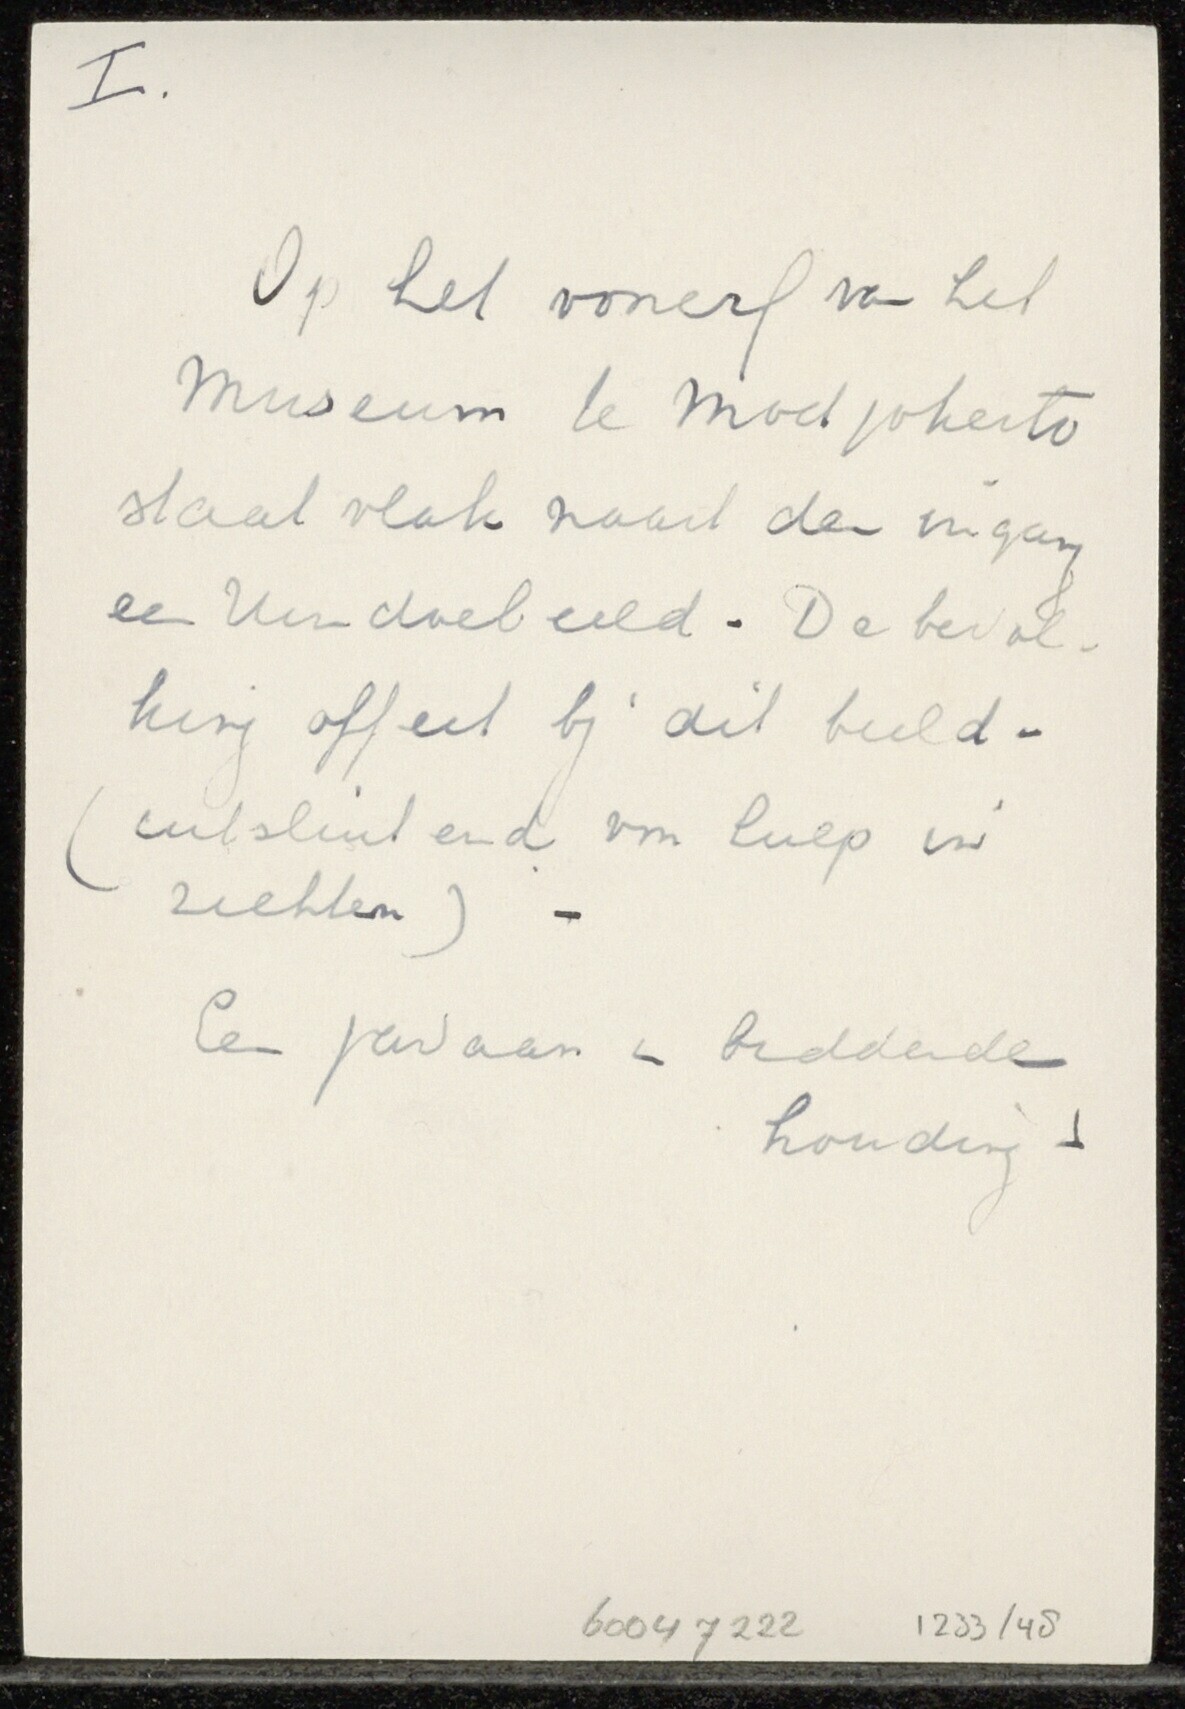 I.
Op het voorerf van het
Museum te Modjokerto
staat vlak naast den ingang
een Hindoebeeld. De bevol-
king offert bij dit beeld -
(uitsluitend om hulp in
ziekten) -
Een javaan in biddende
houding
60047222 1233/48